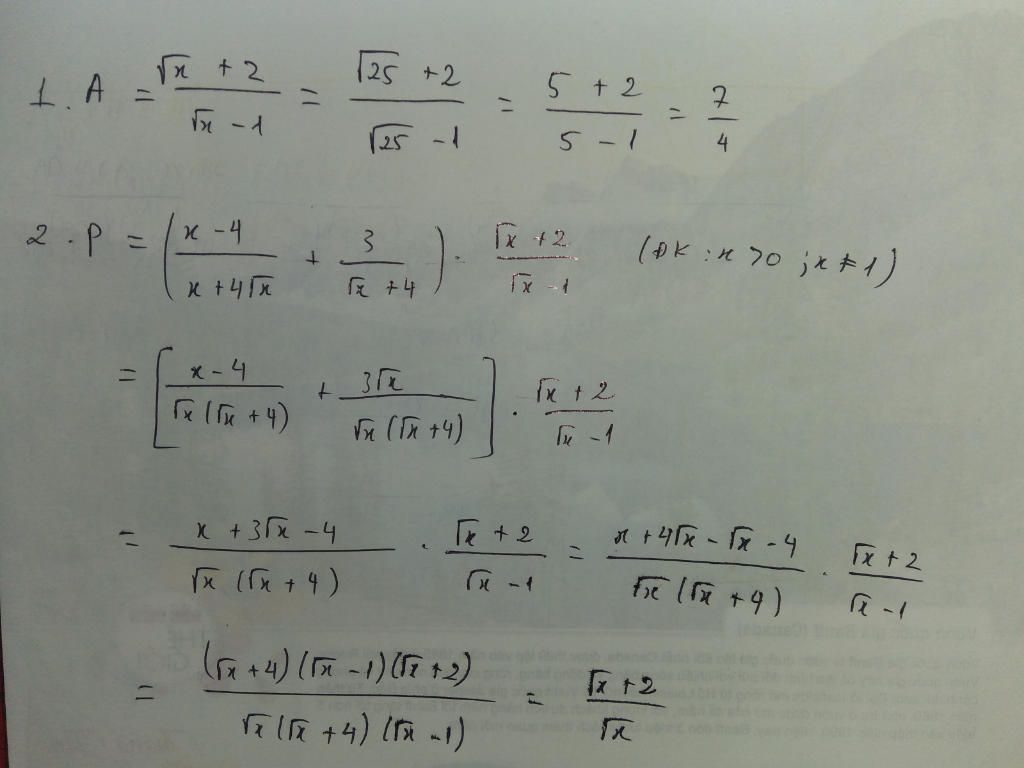 1. A = (√x + 2)/(√x - 1) = (√25 + 2)/(√25 - 1) = (5 + 2)/(5 - 1) = 7/4
2. P = ((x - 4)/(x + 4√x) + 3/(√x + 4)) . (√x + 2)/(√x - 1) (ĐK : x > 0 ; x ≠ 1)
= [(x - 4)/(√x (√x + 4)) + 3√x/(√x (√x + 4))] . (√x + 2)/(√x - 1)
= (x + 3√x - 4)/(√x (√x + 4)) . (√x + 2)/(√x - 1) = (x + 4√x - √x - 4)/(√x (√x + 4)) . (√x + 2)/(√x - 1)
= ((√x + 4)(√x - 1)(√x + 2))/(√x (√x + 4)(√x - 1)) = (√x + 2)/√x